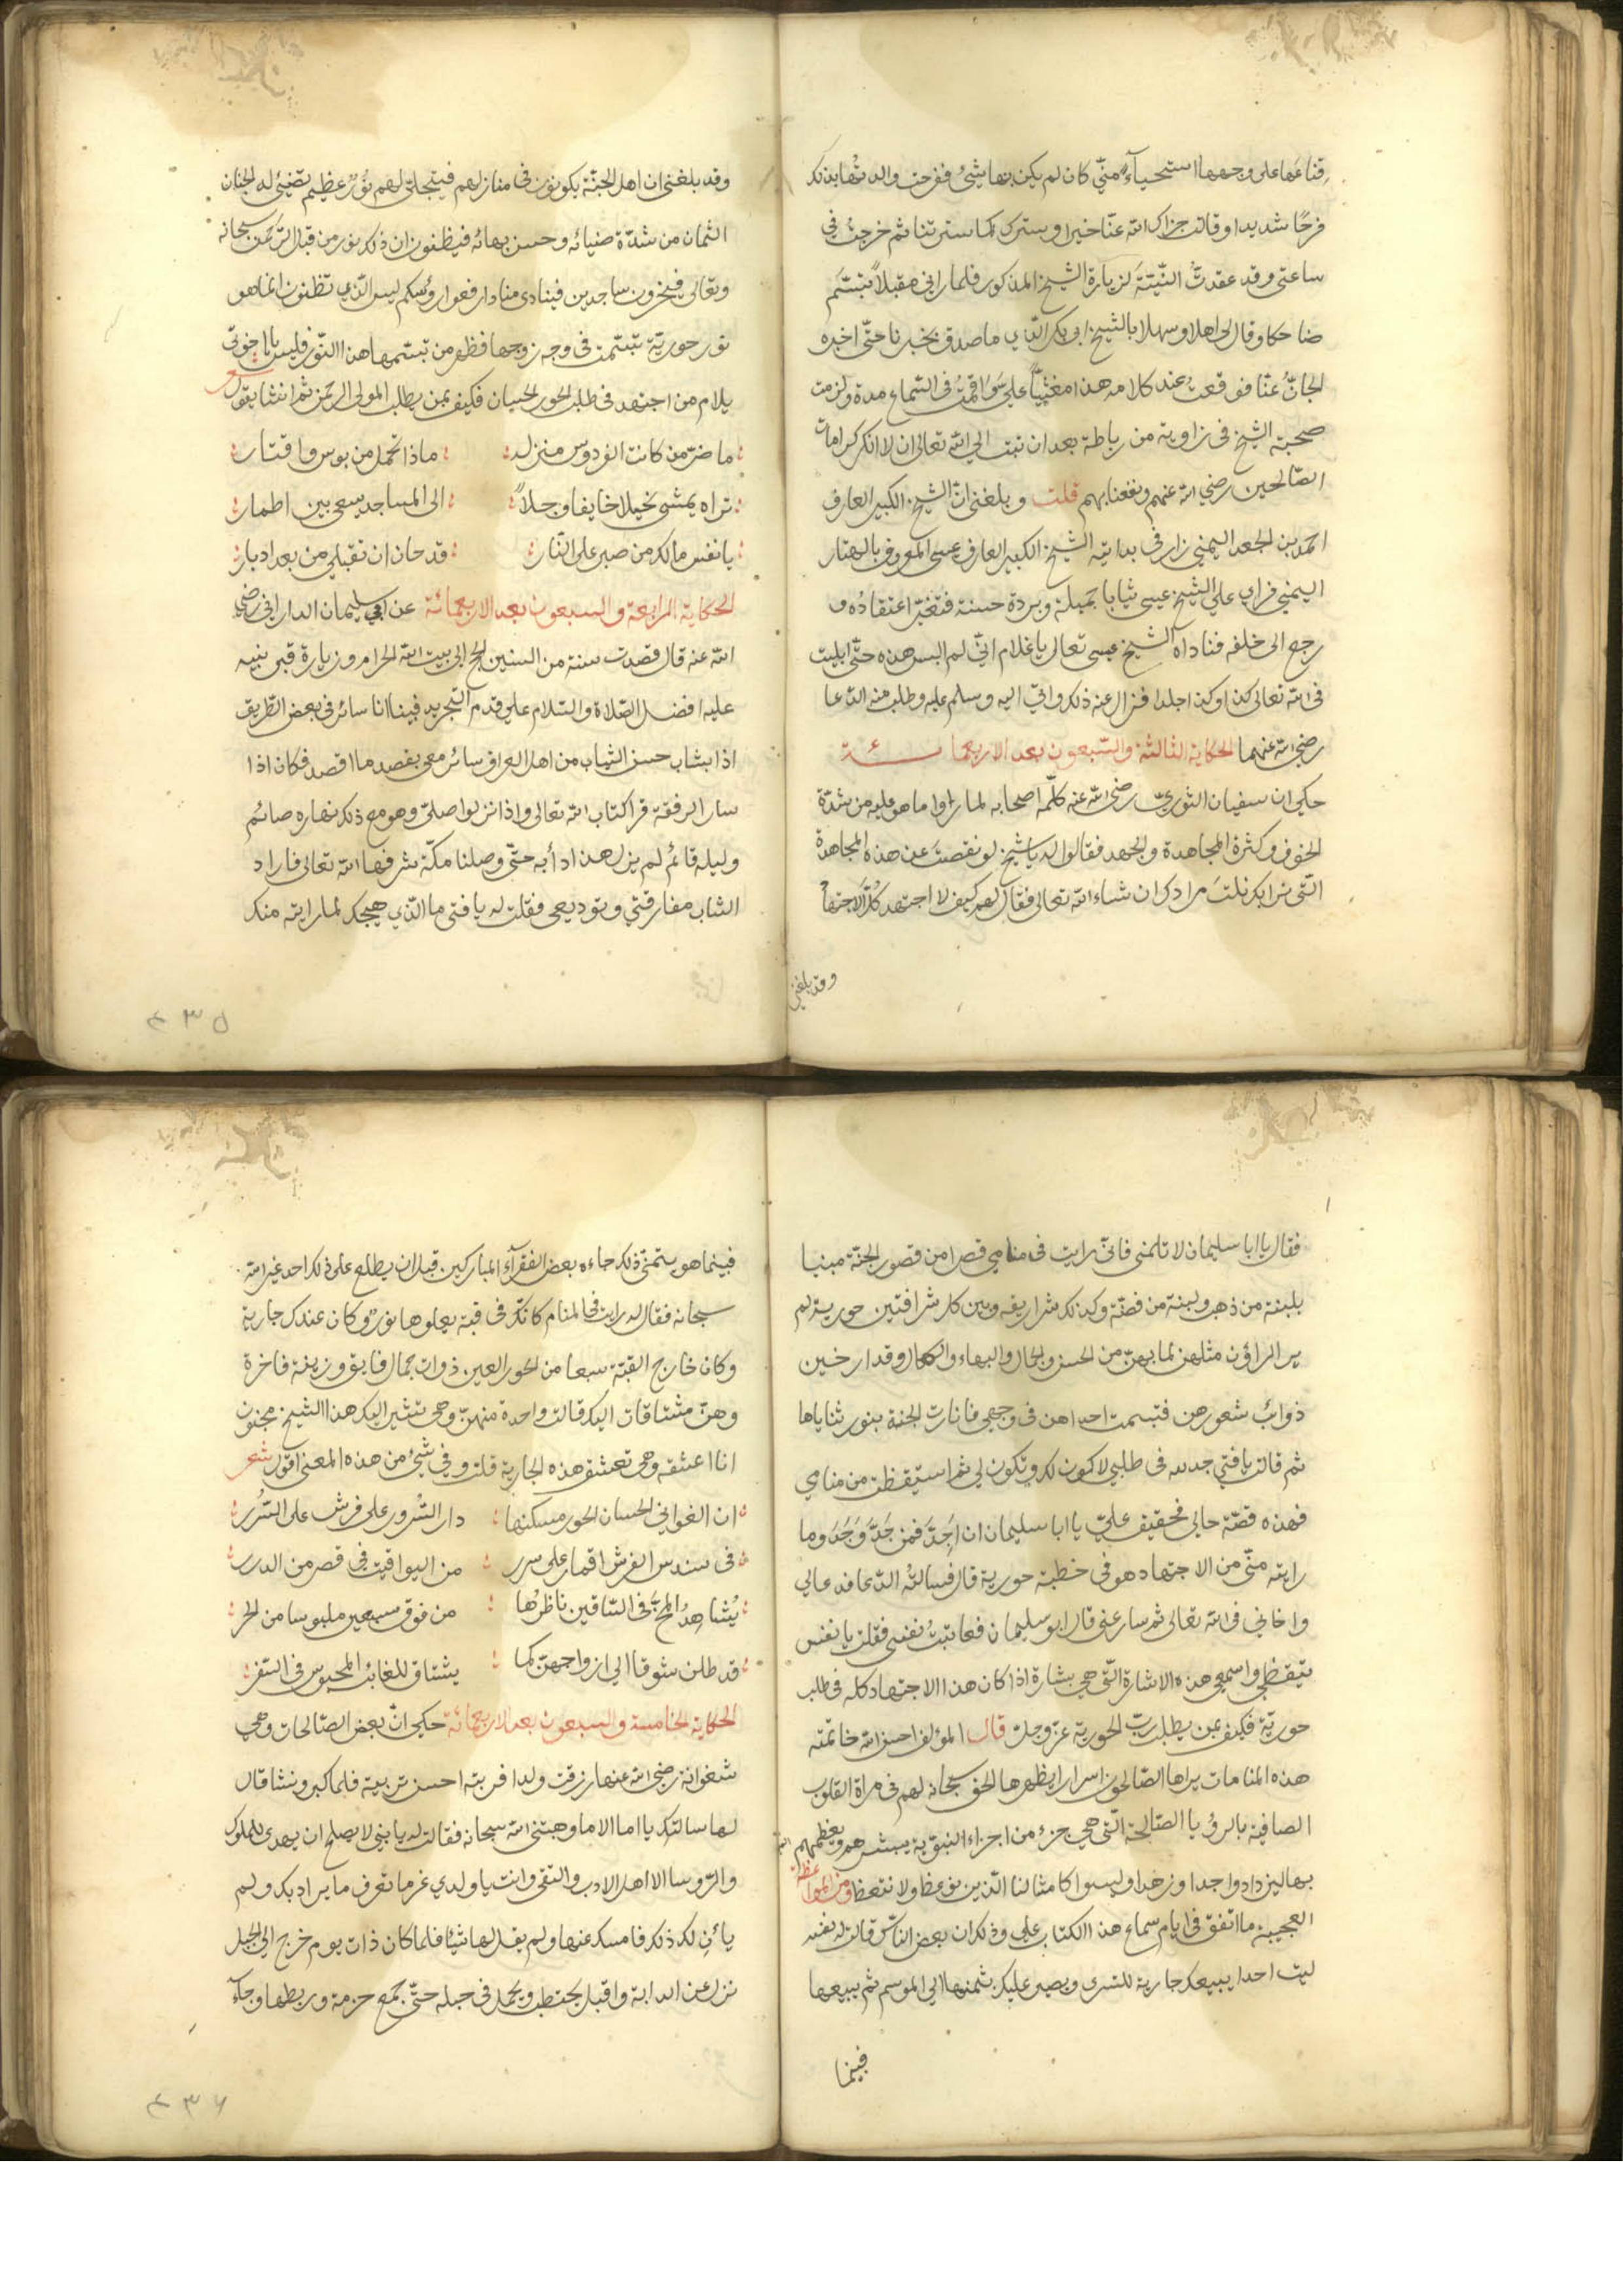 قناعها على وجهها استحياءً منّي كان لم يكن بها شئ ففرحت والدتها بذلك
فرحًا شديدا وقالت جزاك الله عنّا خيرا وسترك كما سترتنا ثم خرجت في
ساعتي وقد عقدتُ النيّتة لزيارة الشيخ المذكور فلما راني مقبلاً تبسّم
ضاحكا وقال لي اهلا وسهلا بالشيخ ابي بكر الذي ما صدق بخبرنا حتّى اخبره
الجانّ عنّا فوقعت عند كلامه هذا مغشيًّا عليّ واقمتُ في السّماع مدة ولزمت
صحبة الشيخ في زاوية من رباطه بعد ان تبت الى الله تعالى ان لا انكر كرامات
الصّالحين رضي الله عنهم ونفعنا بهم قلت وبلغني انّ الشيخ الكبير العارف
احمد بن الجعد اليمني زار في بدايته الشيخ الكبير العارف عيسى المعروف بالهتار
اليمني فراى على الشيخ عيسى ثيابا جميلة وبردة حسنة فتغيّر اعتقاده و
رجع الى خلفه فناداه الشيخ عيسى تعال يا غلام انّي لم البس هذه حتّى ابليت
في الله تعالى كذا وكذا جلدا فزال عنه ذلك واتى اليه وسلم عليه وطلب منه الدّعا
رضي الله عنهما الحكاية الثالثة والسّبعون بعد الاربعمائة
حكي ان سفيان الثوريّ رضي الله عنه كلّمه اصحابه لما راوا ما هو عليه من شدّة
الخوف وكثرة المجاهدة والجهد فقالوا له يا شيخ لو نقصت عن هذه المجاهدة
التّي نراك نلت مرادك ان شاء الله تعالى فقال لهم كيف لا اجتهد كلّ الاجتهاد
وقد بلغني
وقد بلغني ان اهل الجنّة يكونون في منازلهم فيتجلّى لهم نورٌ عظيم تضيئ له الجنان
الثمان من شدّة ضيائه وحسن بهائه فيظنون ان ذلك نور من قبل الرّحمن سبحانه
وتعالى فيخرون ساجدين فينادى مناد ارفعوا رؤسكم ليس الّذي تظنون انما هو
نور حوريّة تبسّمت في وجه زوجها فظهر من تبسّمها هذا النّور فليس يا اخوتي
يلام من اجتهد في طلب الحور الحسان فكيف بمن يطلب المولى الرحمن ثم انشا يقول شعر
ما ضرّ من كانت الفردوس منزله ماذا تحمّل من بوس واقتار
تراه يمشي نحيلا خايفا وجلاً الى المساجد يسعى بين اطمار
يا نفس مالك من صبر على النّار قد حان ان تقبلي من بعد ادبار
الحكاية الرابعة والسبعون بعد الاربعمائة عن ابي سليمان الداراني رضي
الله عنه قال قصدت سنة من السنين الحج الى بيت الله الحرام وزيارة قبر نبيه
عليه افضل الصّلاة والسّلام على قدم التجريد فبينا انا سائر في بعض الطّريق
اذا بشاب حسن الشباب من اهل العراق سائر معي يقصد ما اقصد فكان اذا
سار الرفقة قرا كتاب الله تعالى واذا نزلوا صلّى وهو مع ذلك نهاره صائم
وليله قائم لم يزل هذا دأبه حتّى وصلنا مكّة شرفها الله تعالى فاراد
الشاب مفارقتي وتوديعي فقلت له يا فتى ما الّذي هيجك لما رايته منك
٤٣٥
فقال يا ابا سليمان لا تلمني فانّي رايت في منامي قصرا من قصور الجنّة مبنيا
بلبنة من ذهب ولبنة من فضّة وكذلك شراريفه وبين كل شرافتين حورية لم
ير الراؤن مثلهن لما بهنّ من الحسن والجمال والبهاء والكمال وقد ارخين
ذوائب شعورهن فتبسمت احداهن في وجهي فانارت الجنة بنور ثناياها
ثم قالت يا فتى جد لله في طلبي لاكون لك وتكون لي ثم استيقظت من منامي
فهذه قصّة حالي فحقيق عليّ يا ابا سليمان ان اجدّ فمن جَدَّ وَجَدَ وما
رايته منّي من الاجتهاد هو في خطبة حورية قال فسالته الدّعا فدعا لي
واخاني في الله تعالى ثم سار عني قال ابو سليمان فعاتبتُ نفسي فقلت يا نفس
تيقظي واسمعي هذه الاشارة التّي هي بشارة اذا كان هذا الاجتهاد كله في طلب
حوريّة فكيف بمن يطلب ربّ الحورية عزّ وجلّ قال المؤلف احسن الله خاتمته
هذه المنامات يراها الصّالحون اسرار يظهرها الحق سبحانه لهم في مراة القلوب
الصافية بالرؤيا الصّالحة التّي هي جزء من اجزاء النبوّة يبشّرهم ويعظهم
بها ليزدادوا جدا وزهدا وليسوا كامثالنا الّذين نوعظ ولا نتعظ ومن المواعظ
العجيبة ما اتفق في ايام سماع هذا الكتاب علي وذلك ان بعض النّاس قالت له نفسه
ليت احدا يبيعك جارية للتسرى ويصبر عليك بثمنها الى الموسم ثم يبيعها
فبينما
فبينما هو يتمنى ذلك جاءه بعض الفقرآء المباركين قبل ان يطلع على ذلك احد غير الله
سبحانه فقال له رايت في المنام كانّك في قبة يعلوها نورٌ وكان عندك جارية
وكان خارج القبّة سبعا من الحور العين ذوات جمال فايق وزينة فاخرة
وهنّ مشتاقات اليك قالت واحدة منهنّ وهي تشير اليك هذا الشيخ مجنون
انا اعشقه وهو يعشق هذه الجارية قلت وفي شئ من هذه المعنى اقول شعر
ان الغواني الحسان الحور مسكنها دار السّرور على فرش على السّرر
في سندس الفرش اقمار على سرر من اليواقيت في قصر من الدرر
يُشاهِدُ المخّ في السّاقين ناظرُها من فوق سبعين ملبوسا من الحر
قد طلن شوقا الى ازواجهنّ كما يشتاق للغائب المحبوس في السّفر
الحكاية الخامسة والسبعون بعد الاربعمائة حكي انّ بعض الصّالحات وهي
شعوانة رضي الله عنها رزقت ولدا فربته احسن تربية فلما كبر ونشا قال
لها سالتك يا اما الا ما وهبتني الله سبحانه فقالت له يا بني لا يصلح ان يهدى للملوك
والرّوسا الا اهل الادب والتّقى وانت يا ولدي غر ما تعرف ما يراد بك ولم
يأن لك ذلك فامسك عنها ولم يقل لها شيئا فلما كان ذات يوم خرج الى الجبل
نزل عن الدابة واقبل يحتطب ويحمل في حبله حتّى جمع حزمة وربطها وجآء
٤٣٦